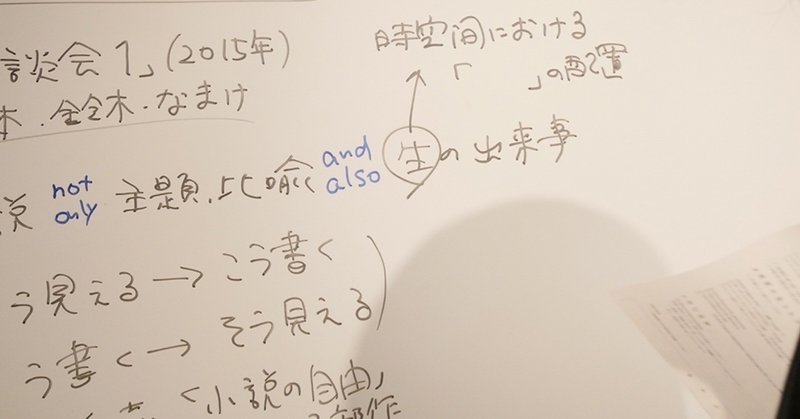 談会1」(2015年)
木・鈴木・なまけ
時空間における
「　　　」の配置
説 not only 主題、比喩 and also 生の出来事
う見える → こう書く
う書く → そう見える)
〈小説の自由」